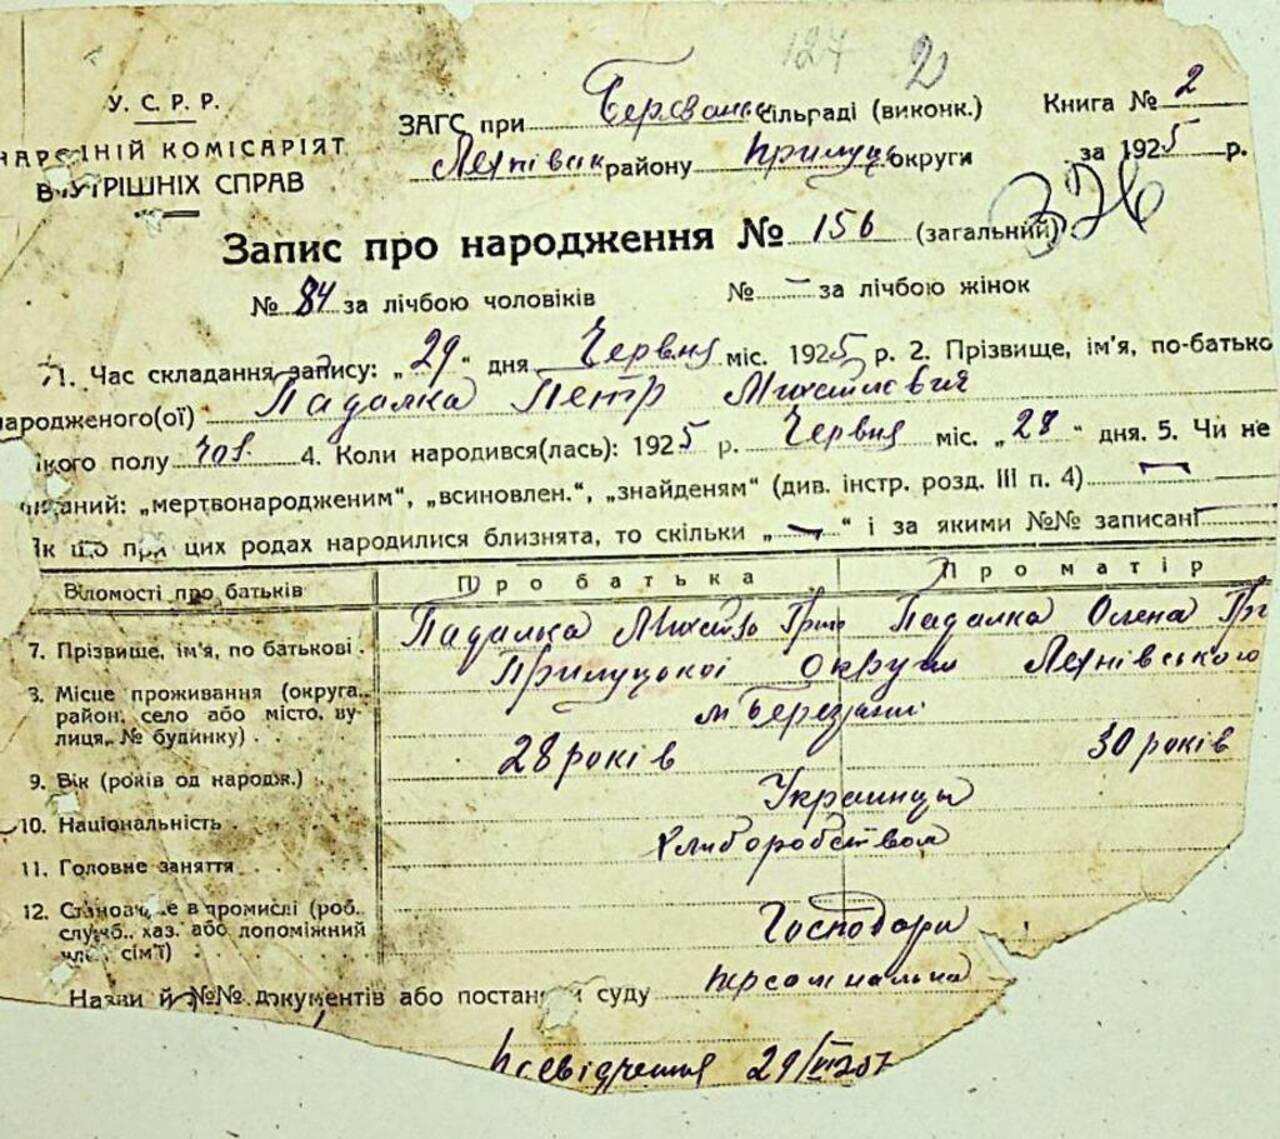 127 2
У. С. Р. Р.
НАРОДНІЙ КОМІСАРІЯТ
ВНУТРІШНІХ СПРАВ
ЗАГС при сільраді (виконк.) Книга № 2
району Прилуць округи за 1925 р.
Запис про народження № 156 (загальний)
№ 84 за лічбою чоловіків № — за лічбою жінок
1. Час складання запису: „29“ дня Червня міс. 1925 р. 2. Прізвище, ім'я, по-батько
народженого(ої) Падалка Петр Михайлович
якого полу чол. 4. Коли народився(лась): 1925 р. Червня міс. „28“ дня. 5. Чи не
записаний: „мертвонародженим“, „всиновлен.“, „знайденям“ (див. інстр. розд. III п. 4) —
Як що при цих родах народилися близнята, то скільки „—“ і за якими №№ записані
Відомості про батьків Про батька Про матір
7. Прізвище, ім'я, по батькові . Падалка Михайло Григ Падалка Олена Гр
3. Місце проживання (округа, Прилуцької округи Лехнівського
район, село або місто, ву- м Березані
лиця, № будинку) . .
9. Вік (років од народж.) 28 років 30 років
10. Національність . Украинцы
11. Головне заняття . . . . Хлиборобством
12. Становище в промислі (роб. Господари
служб., хаз. або допоміжний
член сім'ї) . . . . .
Назви й №№ документів або постанови суду персональна
Посвідчення 29/VI 257